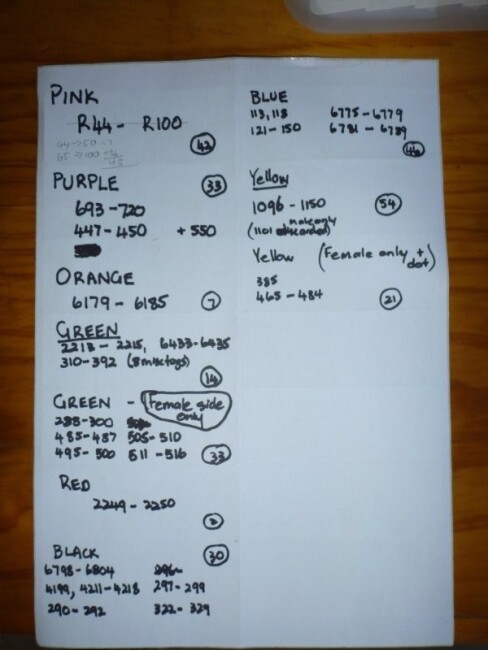 PINK
R44 - R100
42
PURPLE 33
693-720
447-450 + 550
ORANGE
6179 - 6185 7
GREEN
2213 - 2215, 6433-6435
310-392 (8 misc tags)
14
GREEN - Female side only
288-300
485-487 505-510
495-500 511-516 33
RED
2249 - 2250
2
BLACK 30
6798-6804 296-
4199, 4211-4218 297-299
290-292 322-329
BLUE
113, 118 6775-6779
121-150 6781-6789
46
Yellow
1096 - 1150 54
male only
(1101 discarded)
Yellow (Female only + dot)
385
465-484 21